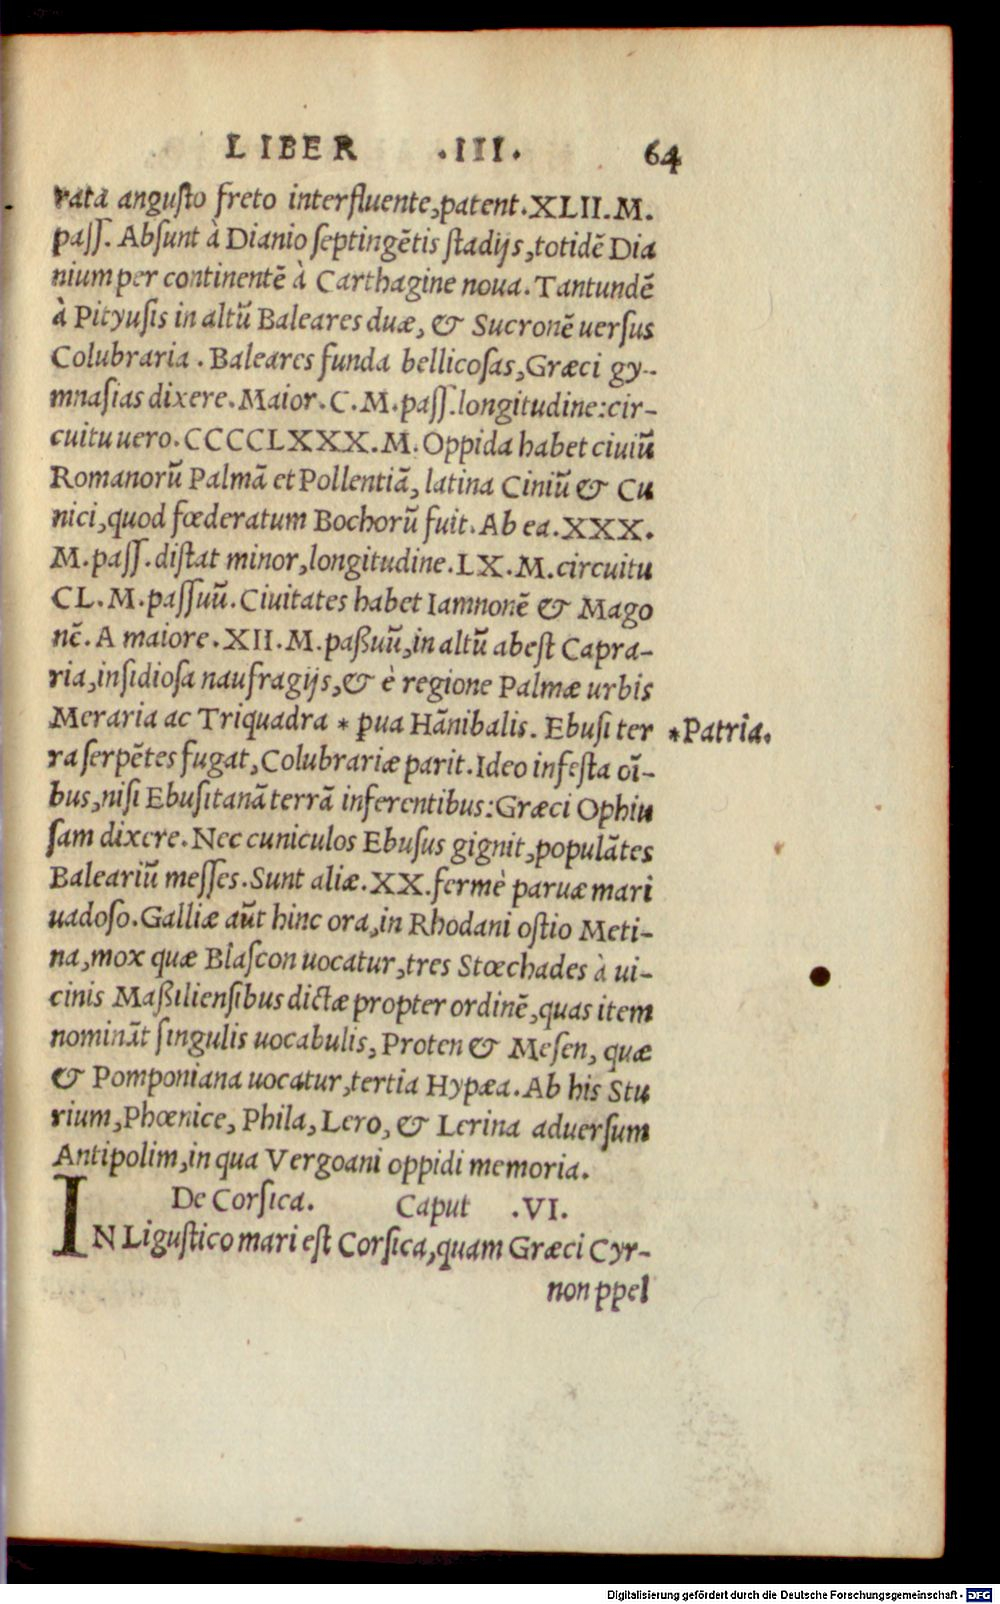 LIBER .III. 64
rata angusto freto interfluente,patent.XLII.M.
pass. Absunt à Dianio septingētis stadijs,totidē Dia
nium per continentē à Carthagine noua. Tantundē
à Pityusis in altū Baleares duæ, & Sucronē uersus
Colubraria. Baleares funda bellicosas,Græci gy-
mnasias dixere.Maior.C.M.pass.longitudine:cir-
cuitu uero.CCCCLXXX.M.Oppida habet ciuiū
Romanorū Palmā et Pollentiā, latina Ciniū & Cu
nici,quod fœderatum Bochorū fuit.Ab ea.XXX.
M.pass.distat minor,longitudine.LX.M.circuitu
CL.M.passuū.Ciuitates habet Iamnonē & Mago
nē.A maiore.XII.M.paßuū,in altū abest Capra-
ria,insidiosa naufragijs,& è regione Palmæ urbis
Meraria ac Triquadra * pua Hānibalis. Ebusi ter *Patria.
ra serpētes fugat,Colubrariæ parit.Ideo infesta oī-
bus,nisi Ebusitanā terrā inferentibus:Græci Ophiu
sam dixere.Nec cuniculos Ebusus gignit,populātes
Baleariū messes.Sunt aliæ.XX.fermè paruæ mari
uadoso.Galliæ aūt hinc ora,in Rhodani ostio Meti-
na,mox quæ Blascon uocatur,tres Stœchades à ui-
cinis Maßiliensibus dictæ propter ordinē,quas item
nomināt singulis uocabulis, Proten & Mesen, quæ
& Pomponiana uocatur,tertia Hypæa.Ab his Stu
rium,Phœnice, Phila, Lero, & Lerina aduersum
Antipolim,in qua Vergoani oppidi memoria.
De Corsica. Caput .VI.
IN Ligustico mari est Corsica,quam Græci Cyr-
non ppel
Digitalisierung gefördert durch die Deutsche Forschungsgemeinschaft - DFG